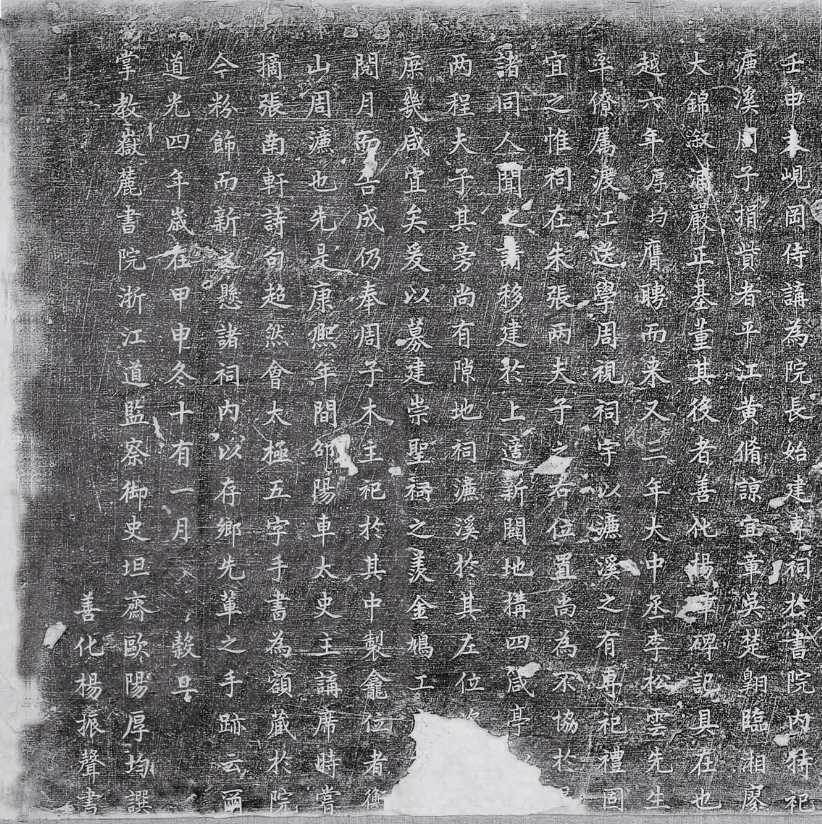 壬申袁峴岡侍講為院長始建專祠於書院内特祀
濂溪周子捐貲者平江黄脩諒宜章吳楚翺臨湘廖
大錦溆浦嚴正基董其後者善化楊碑記具在也
越六年厚均膺聘而来又三年大中丞李松雲先生
率僚属渡江送學周視祠宇以濂溪之有專祀禮固
宜之惟祠在朱張兩夫子之右位置尚為不協於
諸同人聞之請移建於上適新闢地構四箴亭
两程夫子其旁尚有隙地祠濂溪於其左位
庶幾咸宜矣爰以募建崇聖祠之羨金鳩工
閱月而告成仍奉周子木主祀於其中製龕位者衡
山周濂也先是康熙年間邵陽車太史主講席時嘗
摘張南軒詩句超然會太極五字手書為額藏於院
今粉飾而新之懸諸祠内以存鄉先輩之手跡云爾
道光四年歲在甲申冬十有一月穀旦
掌教嶽麓書院浙江道監察御史坦齋歐陽厚均譔
善化楊振聲書